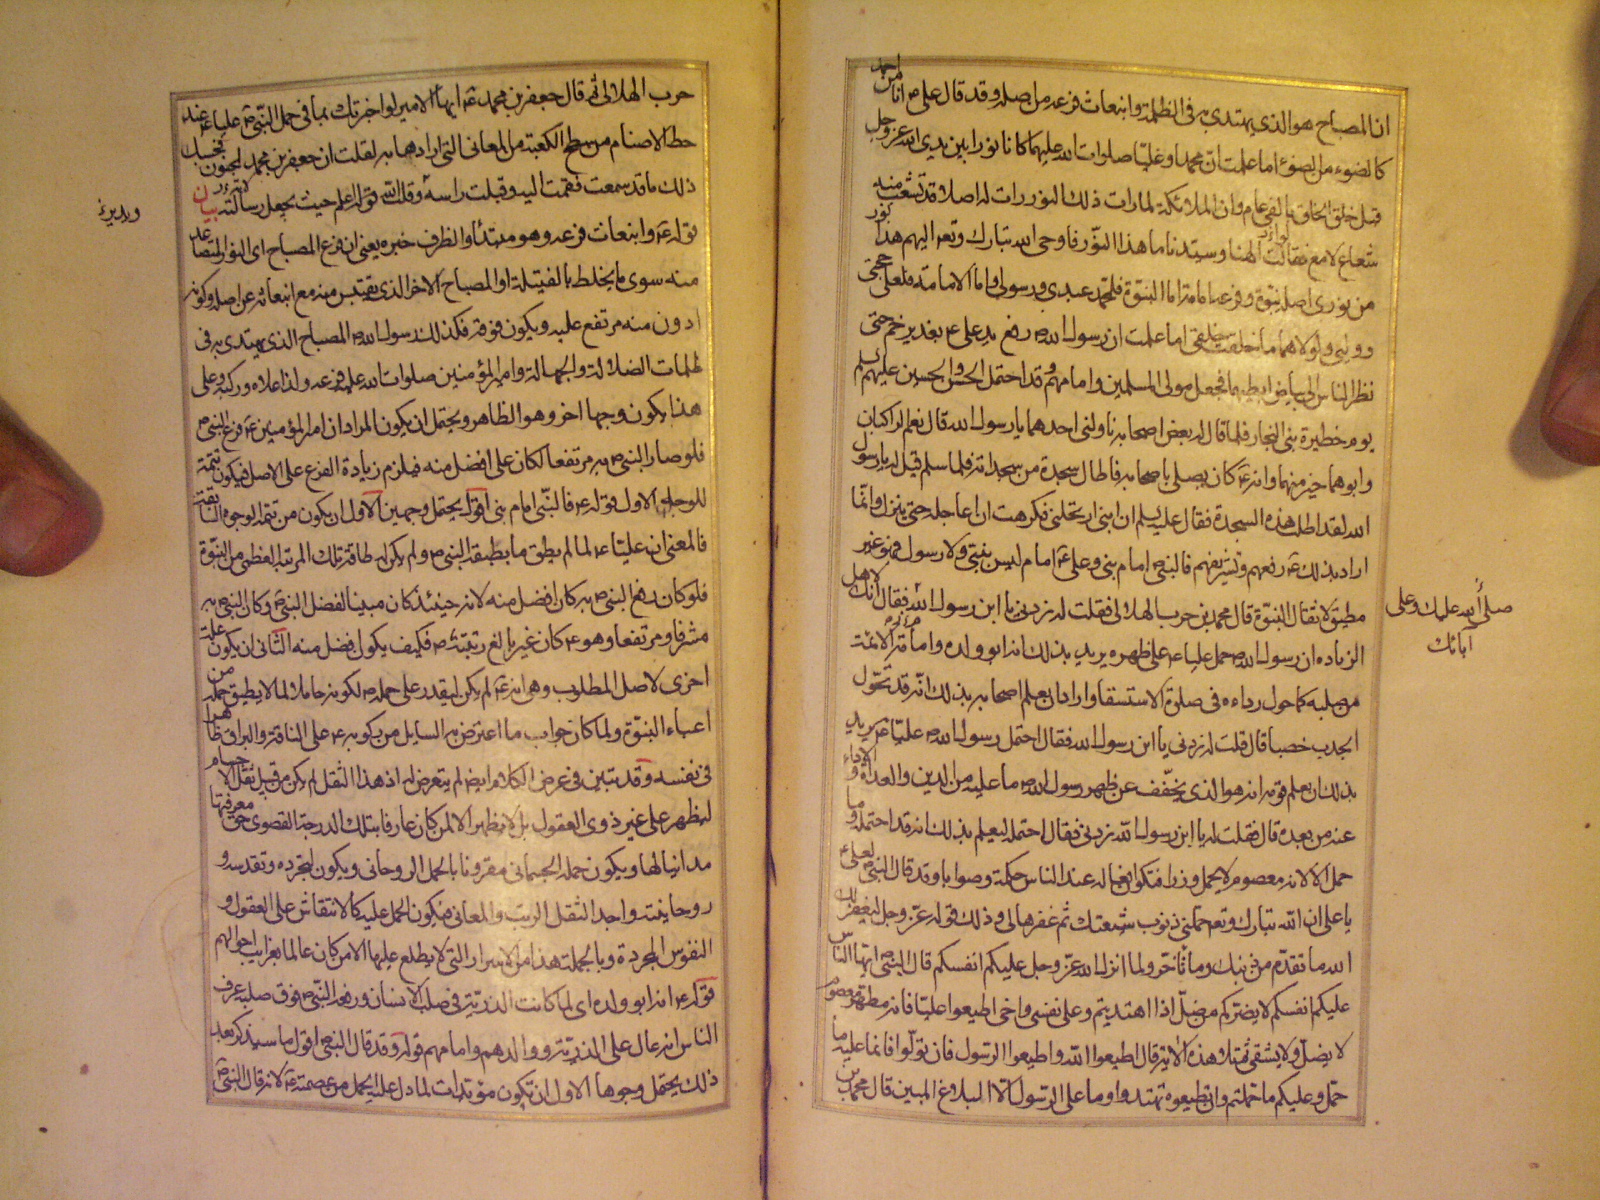 ان المصباح هو الذي يهتدى به فى الظلمة وانبعاث فرعه من اصله وقد قال على ع انا من احمد
كالضوء من الضوء اما علمت ان محمدا وعليا صلوات الله عليهما كانا نورا بين يدي الله عز وجل
قبل خلق الخلق بالفى عام وان الملائكة لما رات ذلك النور رات له اصلا قد تشعب منه
شعاع لامع فقالت الهنا وسيدنا ما هذا النور فاوحى الله تبارك وتعالى اليهم هذا نور
من نورى اصله نبوة وفرعه امامة اما النبوة فلمحمد عبدى ورسولى واما الامامة فلعلى حجتى
ووليى ولولاهما ما خلقت خلقى اما علمت ان رسول الله ص رفع يد على ع بغدير خم حتى
نظر الناس الى بياض ابطيهما فجعله مولى المسلمين وامامهم وقد احتمل الحسن والحسين عليهم السلم
يوم حظيرة بنى النجار فلما قال له بعض اصحابه ناولنى احدهما يا رسول الله قال نعم الراكبان
وابوهما خير منهما وانه ع كان يصلى باصحابه فاطال سجدة من سجداته فلما سلم قيل له يا رسول
الله لقد اطلت هذه السجدة فقال عليه السلم ان ابنى ارتحلنى فكرهت ان اعاجله حتى ينزل وانما
اراد بذلك ع رفعهم وتشريفهم فالنبى امام نبى وعلى ع امام ليس بنبى ولا رسول فهو غير
مطيق لاثقال النبوة قال محمد بن حرب الهلالى فقلت له زدنى يا ابن رسول الله فقال انك لاهل
الزياده ان رسول الله ص حمل عليا ع على ظهره يريد بذلك انه ابو ولده وامام الائمة
من صلبه كما حول رداءه فى صلوة الاستسقا واراد ان يعلم اصحابه بذلك انه قد تحول
الجدب خصبا قال قلت له زدنى يا ابن رسول الله فقال احتمل رسول الله ص عليا ع يريد
بذلك ان يعلم قومه انه هو الذى يخفف عن ظهر رسول الله ص ما عليه من الدين والعداة والاداء
عنه من بعده قال فقلت له يا ابن رسول الله زدنى فقال احتمله ليعلم بذلك انه قد احتمله وما
حمل الا لانه معصوم لا يحمل وزرا فتكون افعاله عند الناس حكمة وصوابا وقد قال النبى لعلى ع
يا على ان الله تبارك وتعالى حملنى ذنوب شيعتك ثم غفرها لى وذلك قوله عز وجل ليغفر لك
الله ما تقدم من ذنبك وما تأخر ولما انزل الله عز وجل عليكم انفسكم قال النبى ايها الناس
عليكم انفسكم لا يضركم من ضل اذا اهتديتم وعلى نفسى واخى اطيعوا عليا فانه مطهر معصوم
لا يضل ولا يشقى ثم تلا هذه الاية قل اطيعوا الله واطيعوا الرسول فان تولوا فانما عليه ما
حمل وعليكم ما حملتم وان تطيعوه تهتدوا وما على الرسول الا البلاغ المبين قال محمد بن
صلى الله عليك وعلى
آبائك
حرب الهلالى ثم قال جعفر بن محمد ع ايها الامير لو اخبرتك بما فى حمل النبى ص عليا ع عند
حط الاصنام من سطح الكعبة من المعانى التى ارادها به لقلت ان جعفر بن محمد لمجنون فحسبك
ذلك ما قد سمعت فقمت اليه وقبلت راسه وقلت الله اعلم حيث يجعل رسالته بيان
قوله ع وانبعاث فرعه وهو مبتدأ والظرف خبره يعنى ان فرع المصباح اى النور المتصاعد
منه سوى ما يخلط بالفتيلة او المصباح الاخر الذى يقتبس منه مع انبعاثه عن اصله وكونه
ادون منه مرتفع عليه ويكون فوقه فكذلك رسول الله ص المصباح الذى يهتدى به فى
ظلمات الضلالة والجهالة وامير المؤمنين صلوات الله عليه فرعه ولذا علاه وركبه وعلى
هذا يكون وجها اخر وهو الظاهر ويحتمل ان يكون المراد ان امير المؤمنين ع فرع النبى ص
فلو صار النبى ص به مرتفعا لكان على افضل منه فيلزم زيادة الفرع على الاصل فيكون تتمة
للوجه الاول قوله ع فالنبى امام نبى اقول يحتمل وجهين الاول ان يكون من تتمة الوجوه السابقة
فالمعنى ان عليا ع لما لم يطق ما يطيقه النبى ص ولم يكن له طاقة تلك المرتبة العظمى من النبوة
فلو كان رفع النبى ص به كان افضل منه لانه حينئذ كان مبينا لفضل النبى ص وكان النبى ص به
مشرفا ومرتفعا وهو ع كان غير بالغ رتبته ص فكيف يكون افضل منه الثانى ان يكون علة
اخرى لاصل المطلوب وهى انه ع لم يكن ليقدر على حمله ص لكونه حاملا لما لا يطيق حمله من
اعباء النبوة ولما كان جواب ما اعترض به السايل من ركوبه ع على الناقة والبراق ظاهرا
فى نفسه وقد تبين فى عرض الكلام ايضا لم يتعرض له اذ هذا الثقل لم يكن من قبيل ثقل الاجسام
ليظهر على غير ذوى العقول بل لا يظهر الا لمن كان عارفا بتلك الدرجة القصوى حق معرفتها
مدانيا لها ويكون حمله الجسمانى مقرونا بالحمل الروحانى ويكون لتجرده وتقدسه و
روحانيته واجد الثقل الرتب والمعانى فيكون الحمل عليه كالانتقاش على العقول و
النفوس المجردة وبالجملة هذا من الاسرار التى لا يطلع عليها الا من كان عالما بغرايب احوالهم
قوله ع انه ابو ولده اى لما كانت الذرية فى صلب الانسان ورفعه النبى ص فوق صلبه عرف
الناس انه عال على الذرية ووالدهم وامامهم قوله وقد قال النبى اقول ما سيذكر بعد
ذلك يحتمل وجوها الاول ان تكون مؤيدات لما دل عليه الحمل من عصمته ع لانه قال النبى ص